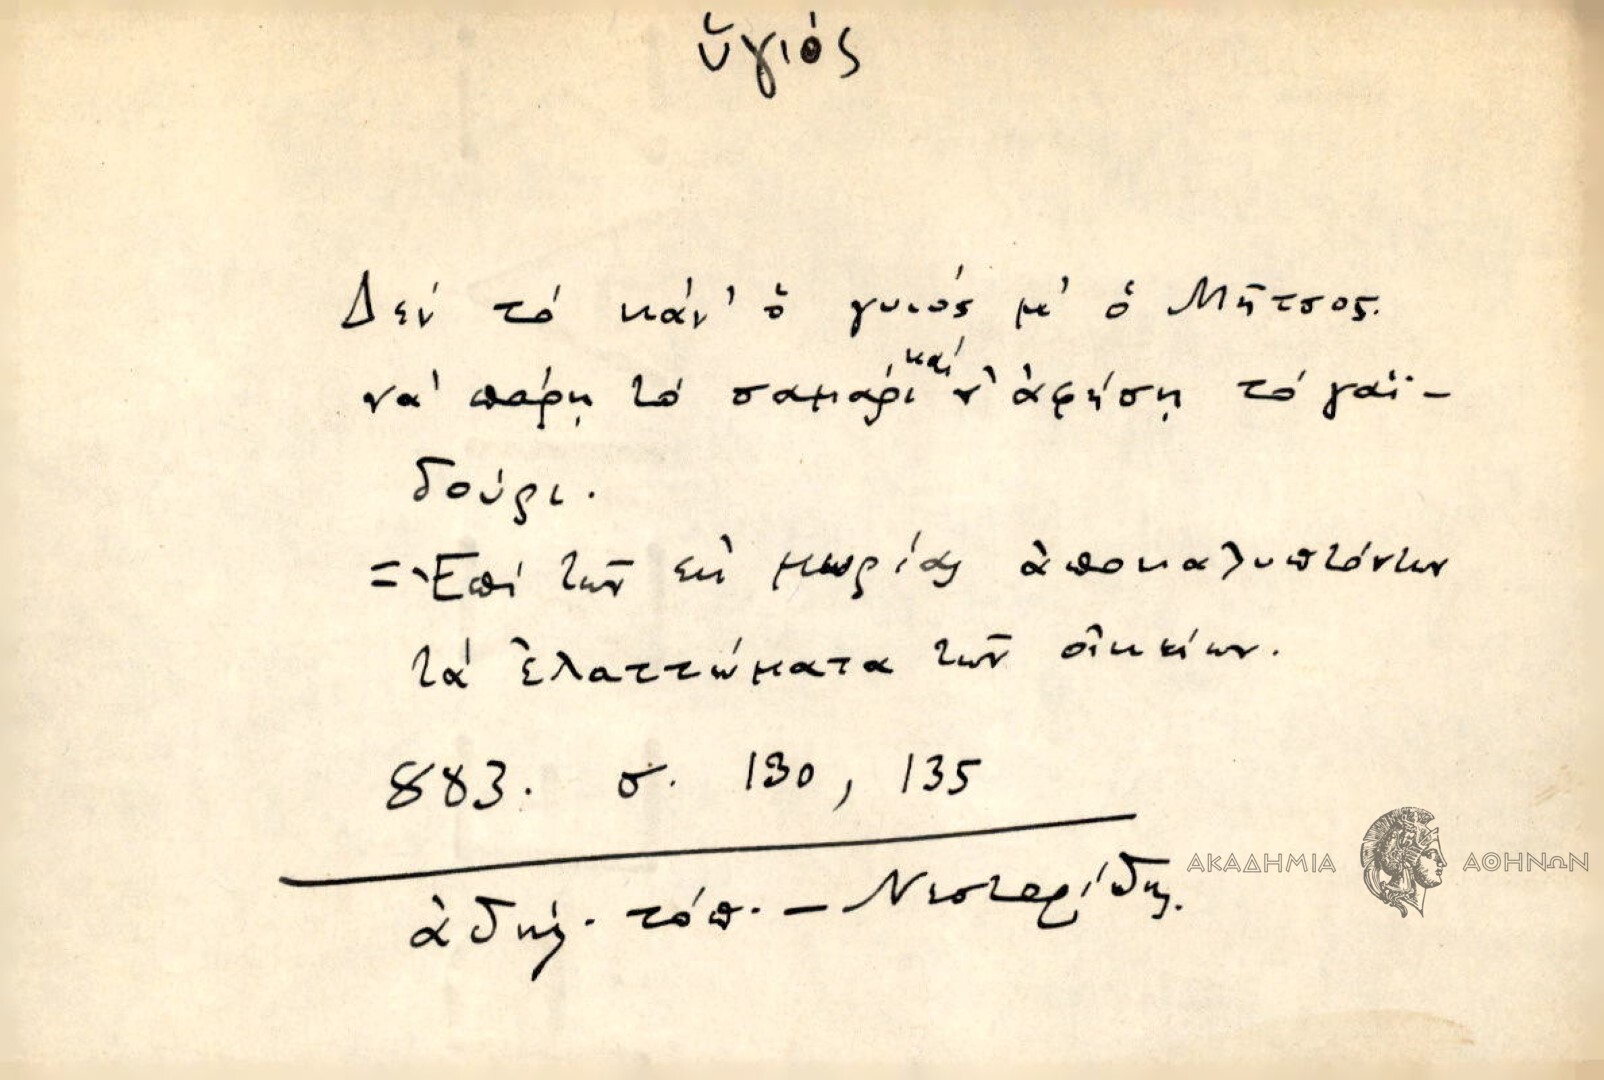 ὑγιός
Δεν τό κάν' ὁ γυιός μ' ὁ Μῆτσος.
νά πάρῃ τό σαμάρι καί ν' ἀφήσῃ τό γαϊ-
δούρι.
= Ἐπί τῶν ἐκ μωρίας ἀποκαλυπτόντων
τά ἐλαττώματα τῶν οἰκείων.
883. σ. 130, 135
ἀδήλ. τόπ. – Νεστορίδης.
ΑΚΑΔΗΜΙΑ ΑΘΗΝΩΝ